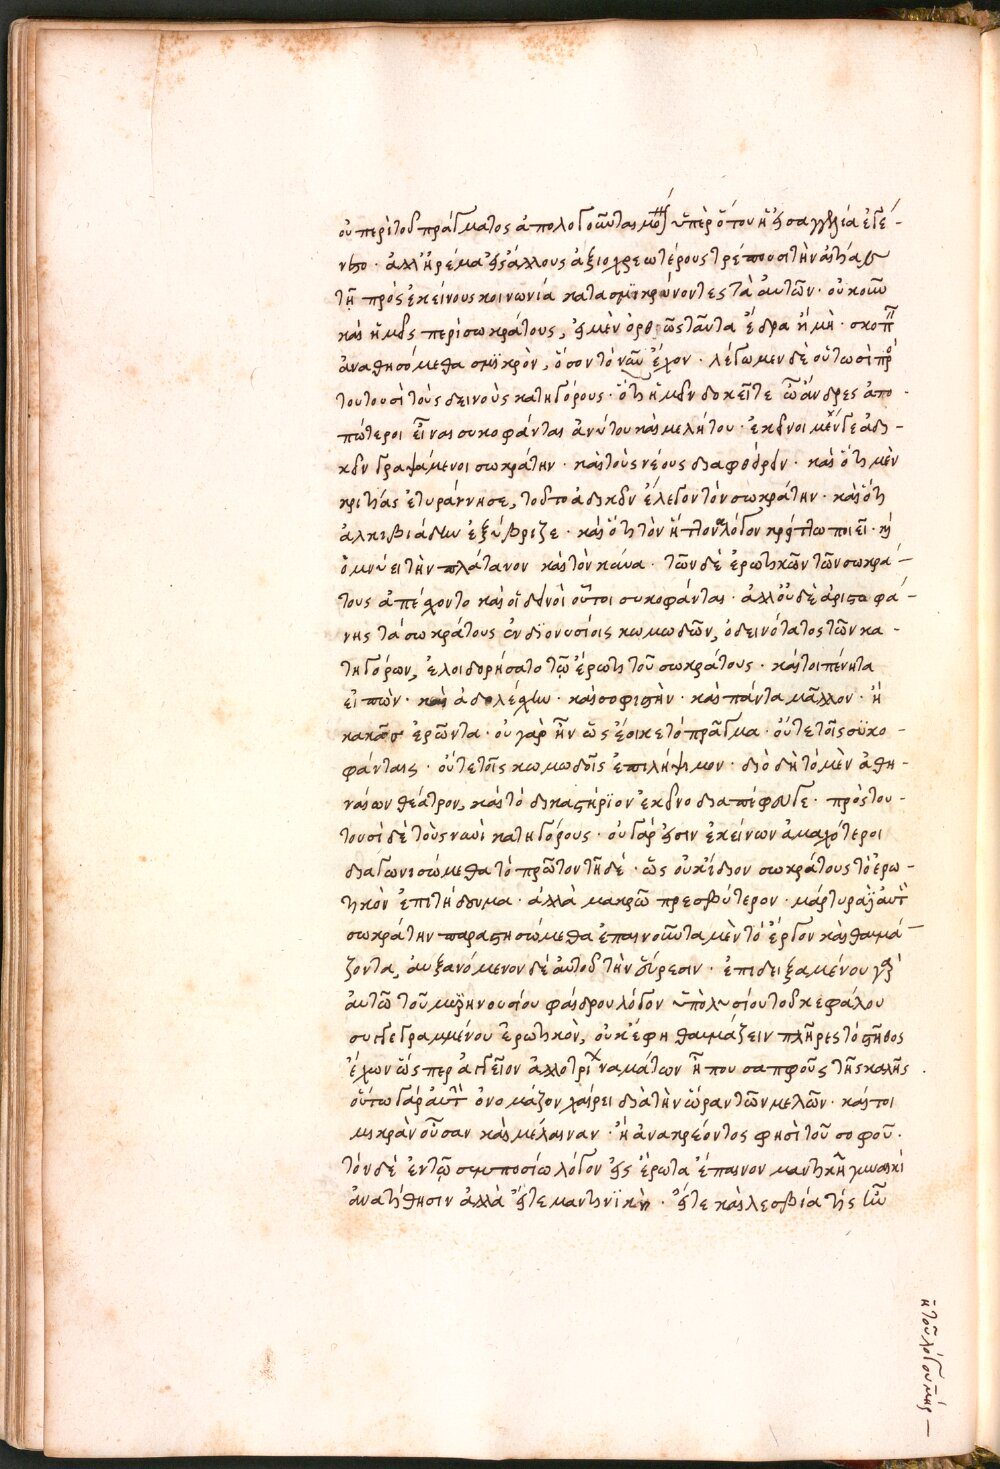 οὐ περὶ τοῦ πράγματος ἀπολογοῦνται μόνον ὑπὲρ ὅτου ἡ εἰσαγγελία ἐγέ-
νετο· ἀλλ' ἠρέμα εἰς ἄλλους ἀξιοχρεωτέρους τρέπουσι τὴν αἰτίαν
τῇ πρὸς ἐκείνους κοινωνία κατασμικρύνοντες τὰ αὐτῶν· οὐκοῦν
καὶ ἡμεῖς περὶ σωκράτους, εἰ μὲν ὀρθῶς ταῦτα ἔδρα ἢ μὴ· σκοπεῖν
ἀναθησόμεθα σμικρὸν, ὅσον τὸ νῦν ἔχον· λέγωμεν δὲ οὕτωσὶ πρὸς
τουτουσὶ τοὺς δεινοὺς κατηγόρους· ὅτι ἡμῖν δοκεῖτε ὦ ἄνδρες ἀπο-
πώτεροι εἶναι συκοφάνται ἀνύτου καὶ μελήτου· ἐκεῖνοι μέν γε ἀδι-
κεῖν γραψάμενοι σωκράτην· καὶ τοὺς νέους διαφθείρειν· καὶ ὅτι μὲν
κριτίας ἐτυράννησε, τοῦτο ἀδικεῖν ἔλεγον τὸν σωκράτην· καὶ ὅτι
ἀλκιβιάδην ἐξύβριζε· καὶ ὅτι τὸν ἥττονα λόγον κρείττω ποιεῖ· καὶ
ὀμνύει τὴν πλάτανον καὶ τὸν κύνα· τῶν δὲ ἐρωτικῶν τῶν σωκρά-
τους ἀπέχοντο καὶ οἱ δεινοὶ οὗτοι συκοφάνται· ἀλλ' οὐδὲ ἀριστοφά-
νης τὰ σωκράτους ἐν διονυσίοις κωμωδῶν, ὁ δεινότατος τῶν κα-
τηγόρων, ἐλοιδορήσατο τῷ ἔρωτι τοῦ σωκράτους· καίτοι πένητα
εἰπὼν· καὶ ἀδολέσχην· καὶ σοφιστὴν· καὶ πάντα μᾶλλον· ἢ
κακῶς ἐρῶντα· οὐ γὰρ ἦν ὡς ἔοικε τὸ πρᾶγμα· οὔτε τοῖς συκο-
φάνταις· οὔτε τοῖς κωμωδοῖς ἐπιλήψιμον· διὸ δὴ τὸ μὲν ἀθη-
ναίων θέατρον, καὶ τὸ δικαστήριον ἐκεῖνο διαπέφευγε· πρὸς του-
τουσὶ δὲ τοὺς νυνὶ κατηγόρους· οὐ γάρ εἰσιν ἐκείνων ἀμαχότεροι
διαγωνισώμεθα τὸ πρῶτον τῇδε· ὡς οὐκ ἴδιον σωκράτους τὸ ἐρω-
τικὸν ἐπιτήδευμα· ἀλλὰ μακρῶ πρεσβύτερον· μάρτυρα αὐτὸν
σωκράτην παραστησώμεθα ἐπαινοῦντα μὲν τὸ ἔργον καὶ θαυμά-
ζοντα, αὐξανόμενον δὲ αὐτοῦ τὴν εὕρεσιν· ἐπιδειξαμένου γὰρ
αὐτῶ τοῦ μυρρηνουσίου φαίδρου λόγον ὑπὸ λυσίου τοῦ κεφάλου
συγγεγραμμένον ἐρωτικὸν, οὐκ ἔφη θαυμάζειν πλῆρες τὸ στῆθος
ἔχων ὥσπερ ἀγγεῖον ἀλλοτρίων ναμάτων ἤπου σαπφοῦς τῆς καλῆς
οὕτω γὰρ αὐτὴν ὀνομάζων χαίρει διὰ τὴν ὥραν τῶν μελῶν· καίτοι
μικρὰν οὖσαν καὶ μέλαιναν· ἢ ἀνακρέοντος φησὶ τοῦ σοφοῦ·
τὸν δὲ ἐν τῷ συμποσίω λόγον εἰς ἔρωτα ἔπαινον μαντικῇ γυναικὶ
ἀνατίθησιν ἀλλὰ εἴτε μαντινικὴ· εἴτε καὶ λεσβία τὶς ἦν
ἡ τοῦ λόγου μήτηρ